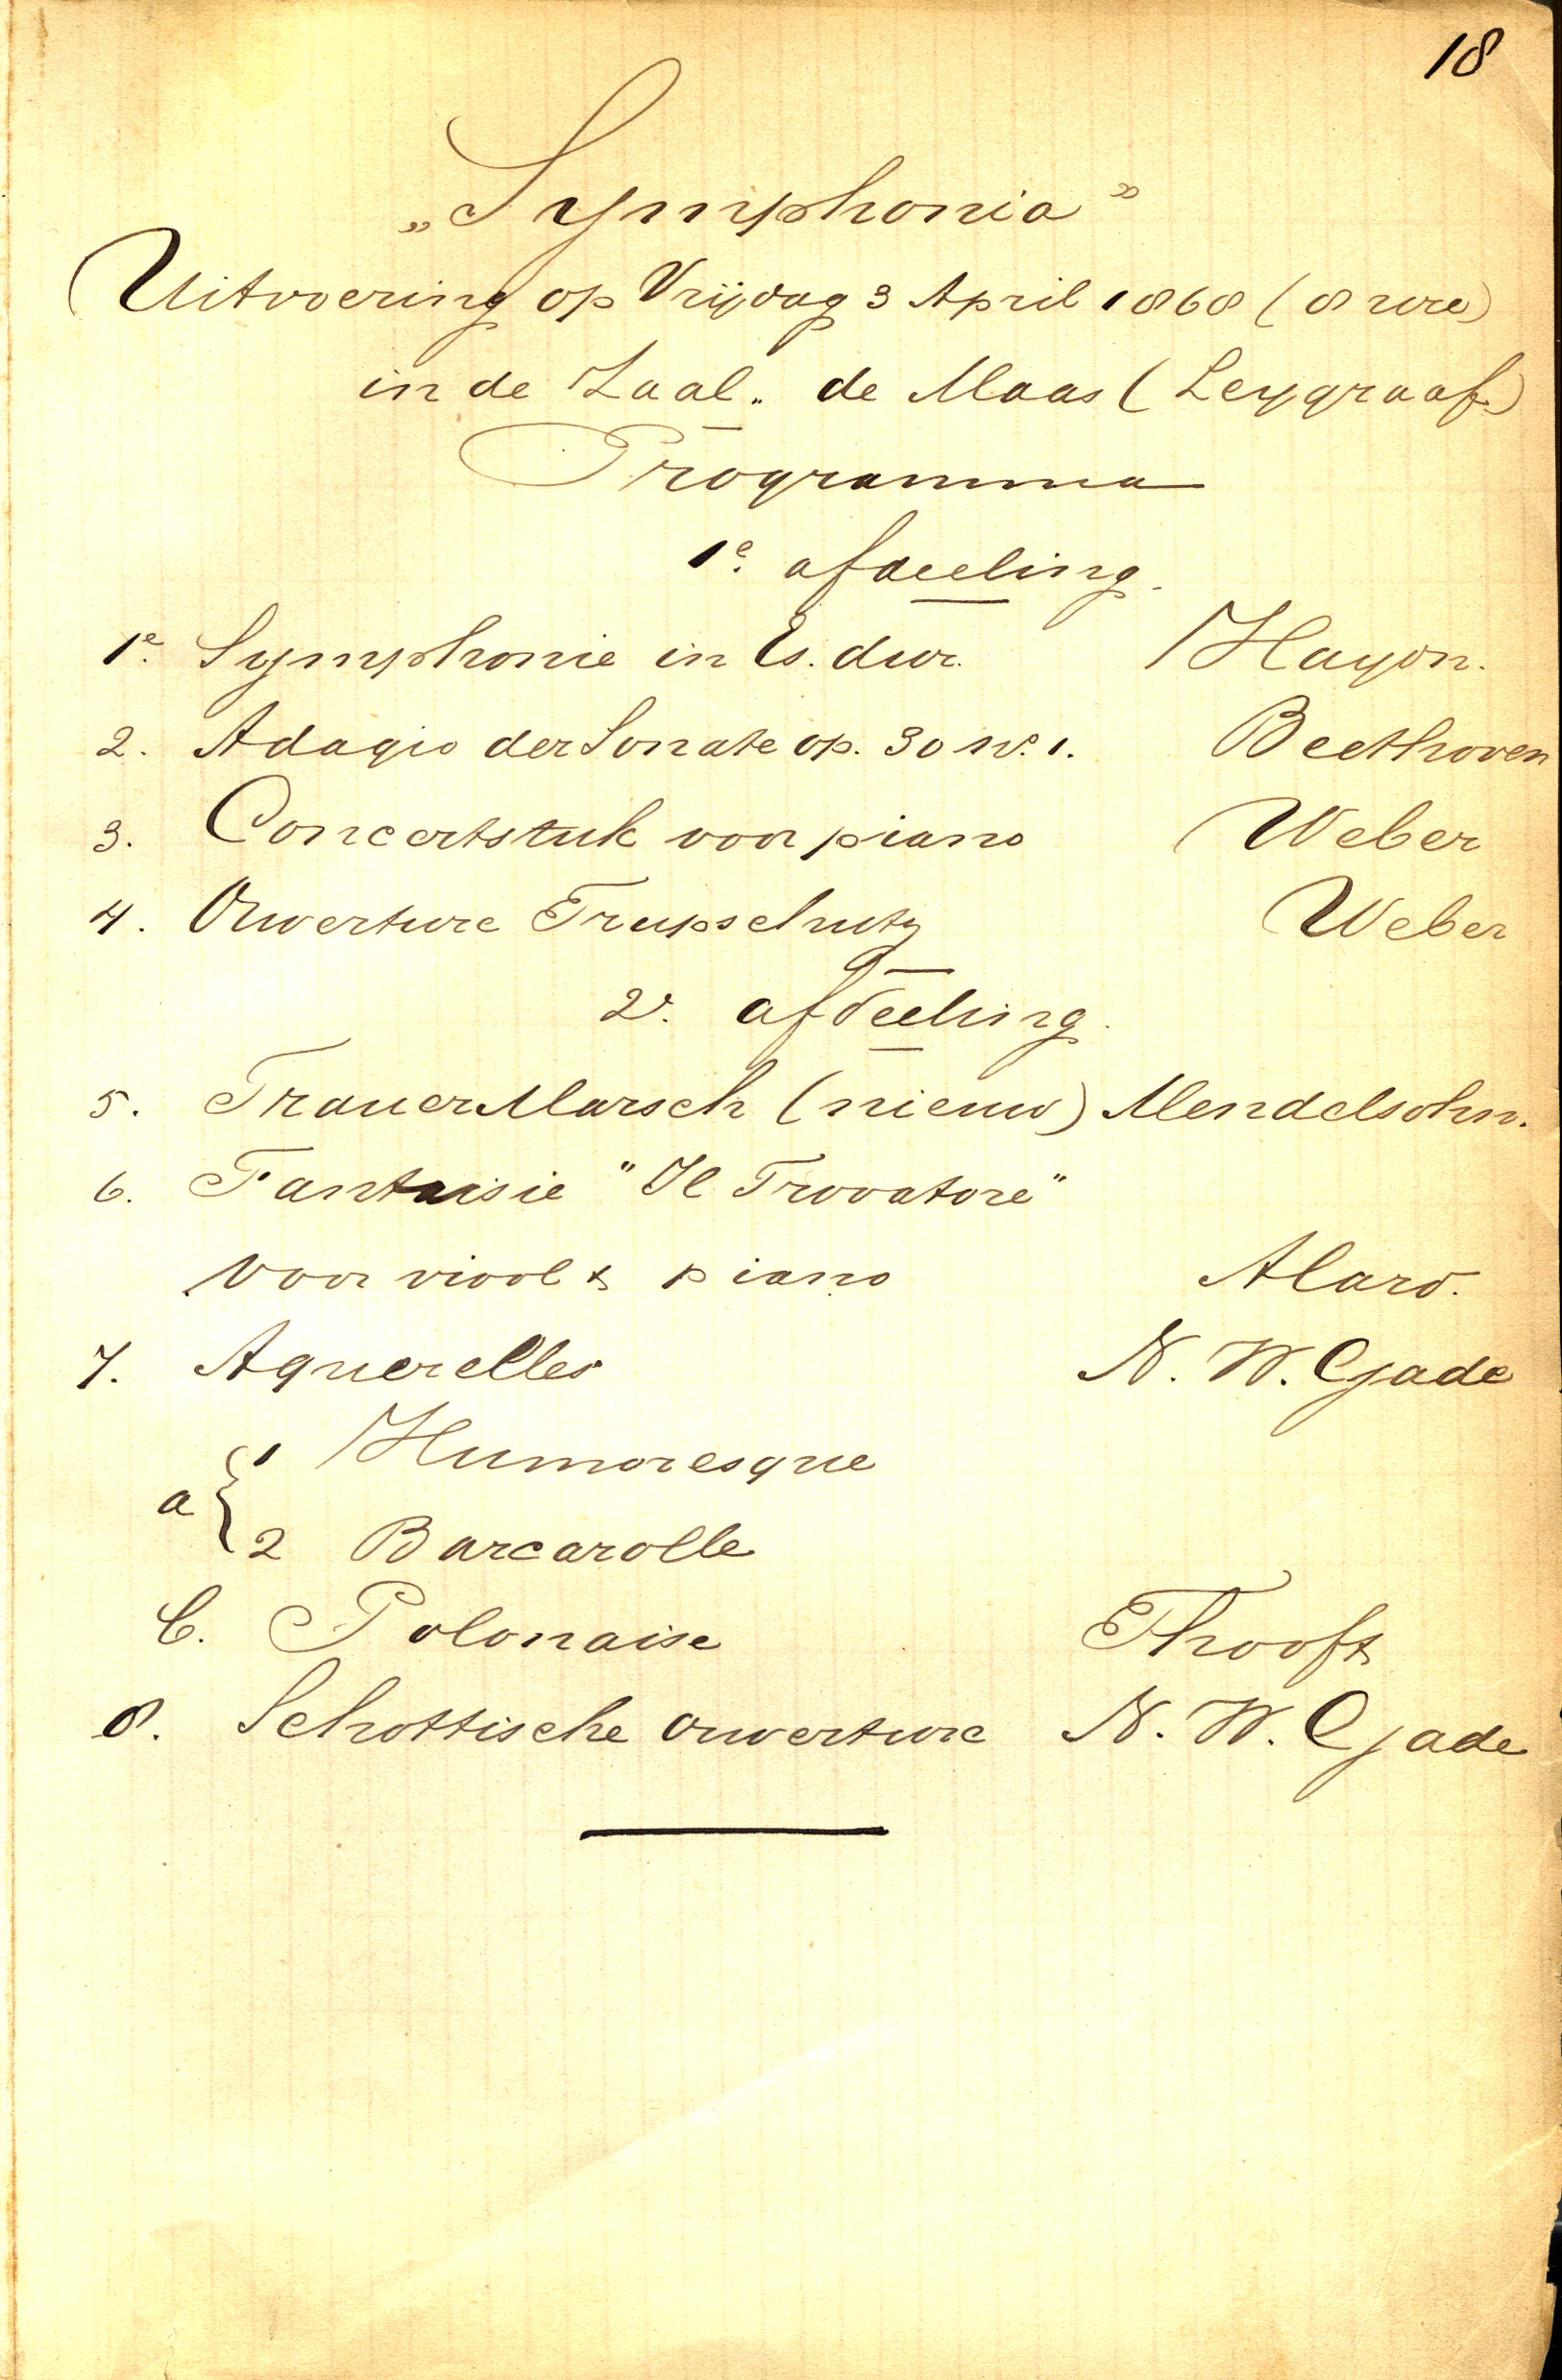 18
„Symphonia”
Uitvoering op Vrijdag 3 April 1868 (8 ure)
in de Zaal „ de Maas (Leygraaf)
Programma
1e. afdeeling.
1e. Symphonie in Es. dur. Haydn.
2. Adagio der Sonate op. 30 No. 1. Beethoven
3. Concertstuk voor piano Weber
4. Ouverture Weber
2e. afdeeling.
5. Trauer Marsch (nieuw) Mendelsohn.
6. Fantaisie "Il Trovatore"
voor viool & piano Alard.
7. Aquerelles N. W. Gade
a { 1 Humoresque
2 Barcarolle
b. Polonaise Thooft
8. Schottische ouverture N. W. Gade